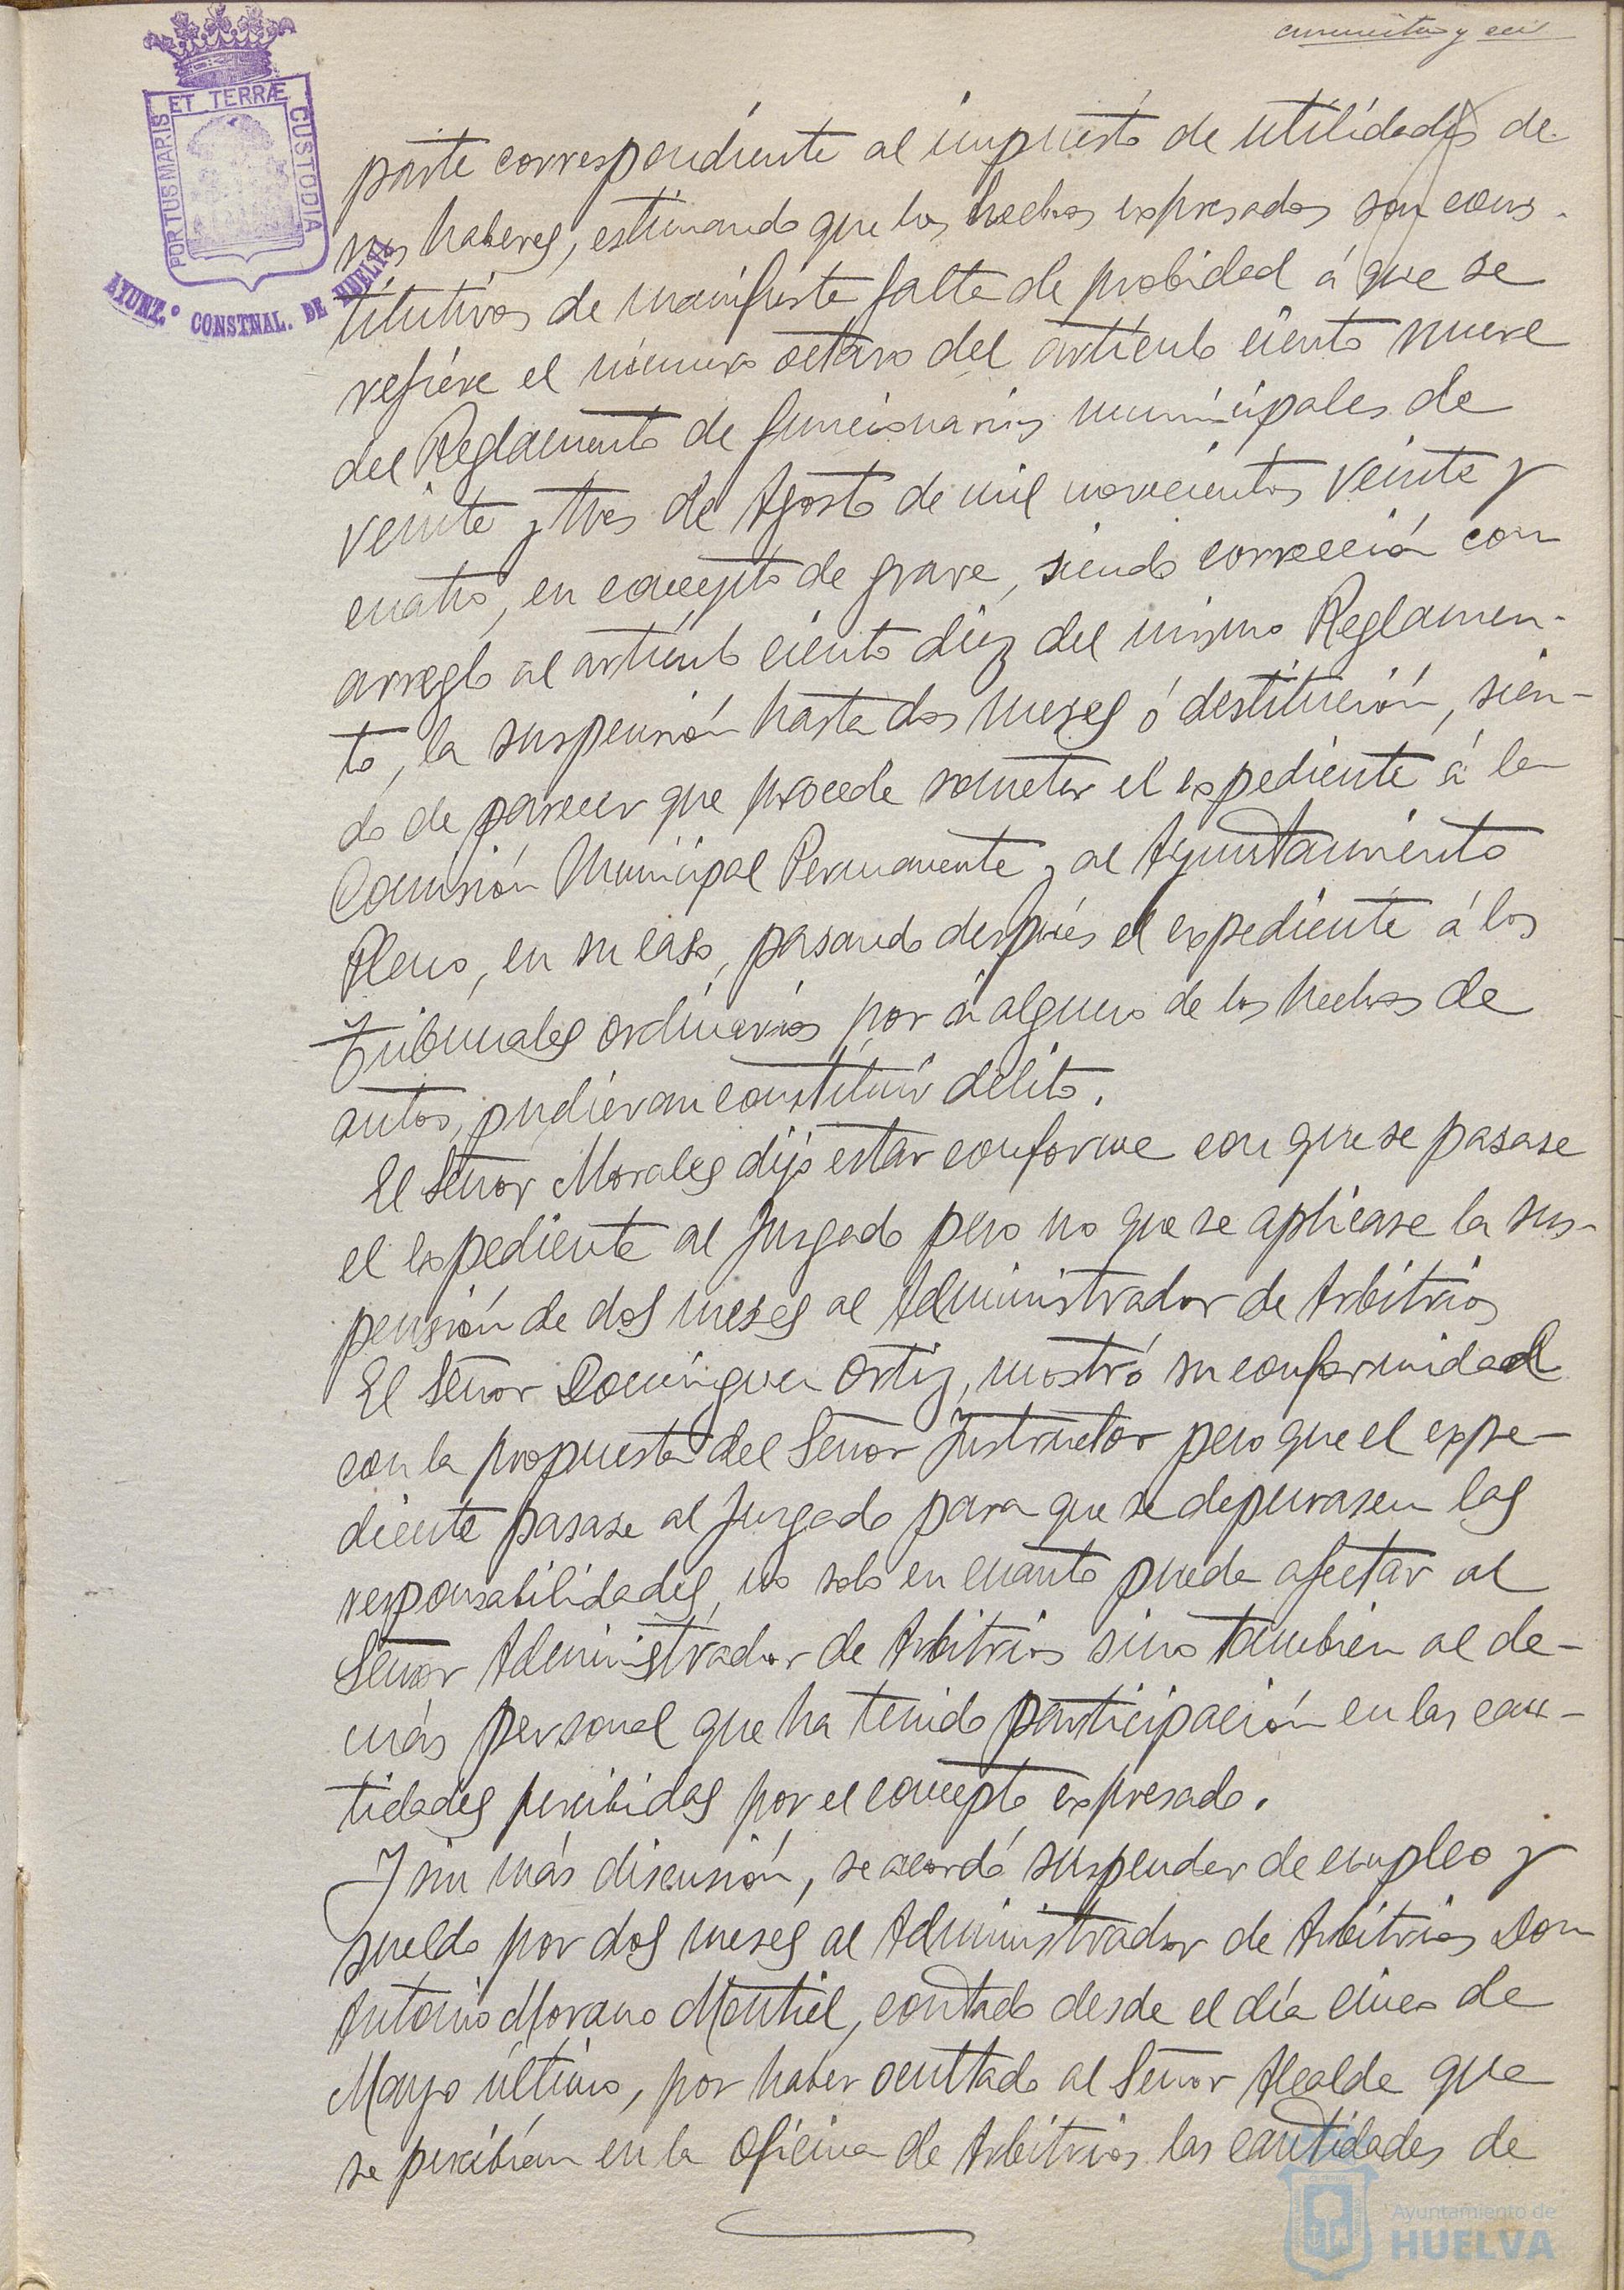 cuarenta y seis
PORTUS MARIS ET TERRÆ CUSTODIA
AYUNT.º CONSTNAL. DE HUELVA
parte correspondiente al impuesto de utilidades de
sus haberes, estimando que los hechos expresados son cons-
titutivos de manifiesta falta de probidad á que se
refiere el número octavo del artículo ciento nueve
del Reglamento de funcionarios municipales de
veinte y tres de Agosto de mil novecientos veinte y
cuatro, en concepto de grave, siendo corrección con
arreglo al artículo ciento diez del mismo Reglamen-
to, la suspensión hasta dos meses ó destitución, sien-
do de parecer que procede someter el expediente á la
Comisión Municipal Permanente y al Ayuntamiento
Pleno, en su caso, pasando después el expediente á los
Tribunales ordinarios por si alguno de los hechos de
autos, pudieran constituir delito.
El Señor Morales dijo estar conforme con que se pasase
el expediente al Juzgado pero no que se aplicase la sus-
pensión de dos meses al Administrador de Arbitrios
El Señor Domínguez Ortiz, mostró su conformidad
con la propuesta del Señor Instructor pero que el expe-
diente pasase al Juzgado para que se depurasen las
responsabilidades, no solo en cuanto pueda afectar al
Señor Administrador de Arbitrios sino también al de-
más personal que ha tenido participación en las can-
tidades percibidas por el concepto expresado.
Y sin más discusión, se acordó suspender de empleo y
sueldo por dos meses al Administrador de Arbitrios Don
Antonio Morano Montiel, contado desde el día cinco de
Mayo último, por haber ocultado al Señor Alcalde que
se percibían en la Oficina de Arbitrios las cantidades de
Ayuntamiento de
HUELVA